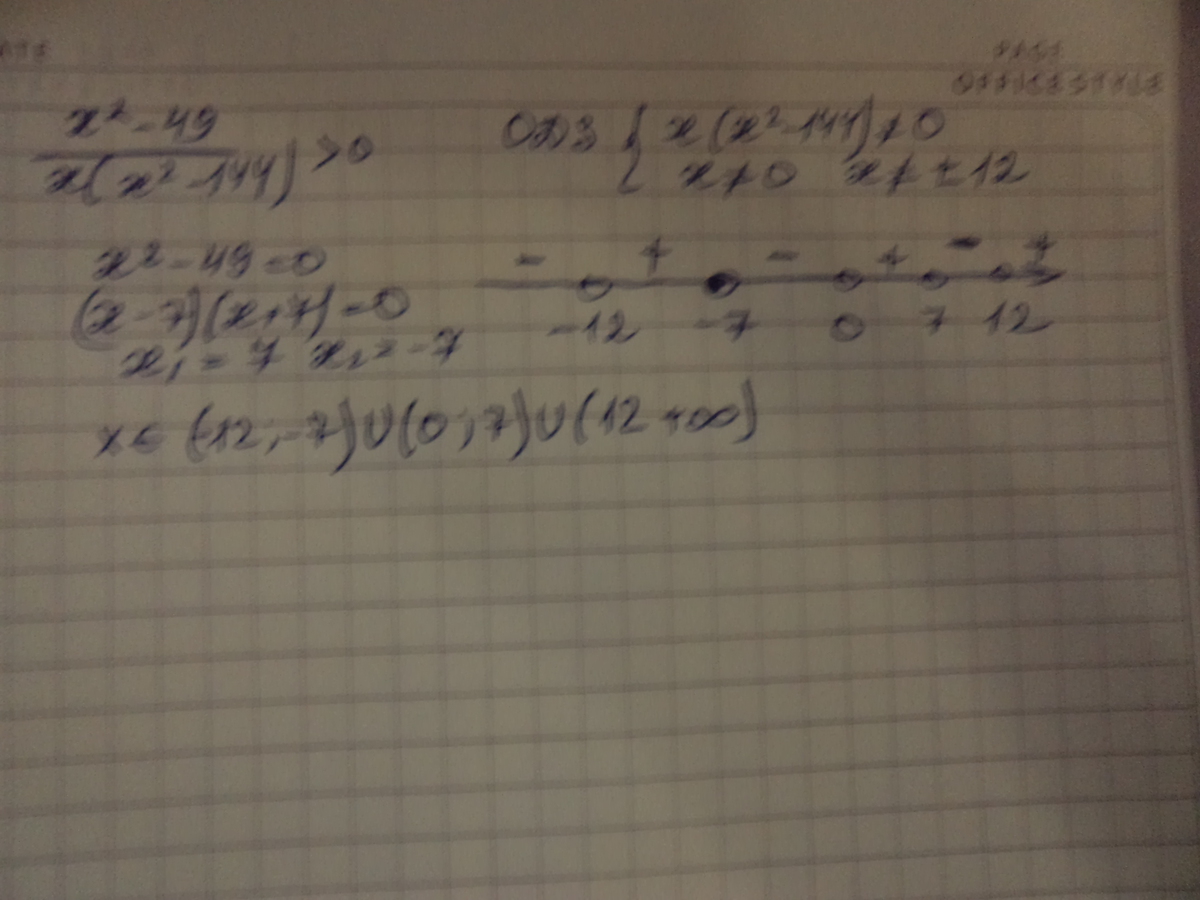 x² - 49
x(x² - 144) > 0
ОДЗ { x(x² - 144) ≠ 0
x ≠ 0 x ≠ ± 12
x² - 49 = 0
(x - 7)(x + 7) = 0
x₁ = 7 x₂ = -7
- + - + - +
-12 -7 0 7 12
x ∈ (-12; -7) U (0; 7) U (12 +∞)